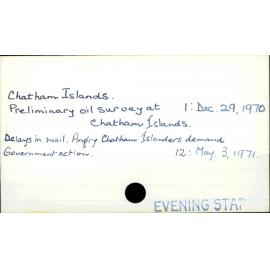 Chatham Islands.
Preliminary oil survey at 1: Dec. 29, 1970
Chatham Islands.
Delays in mail. Angry Chatham Islanders demand
Government action. 12: May. 3, 1971.
EVENING STAR